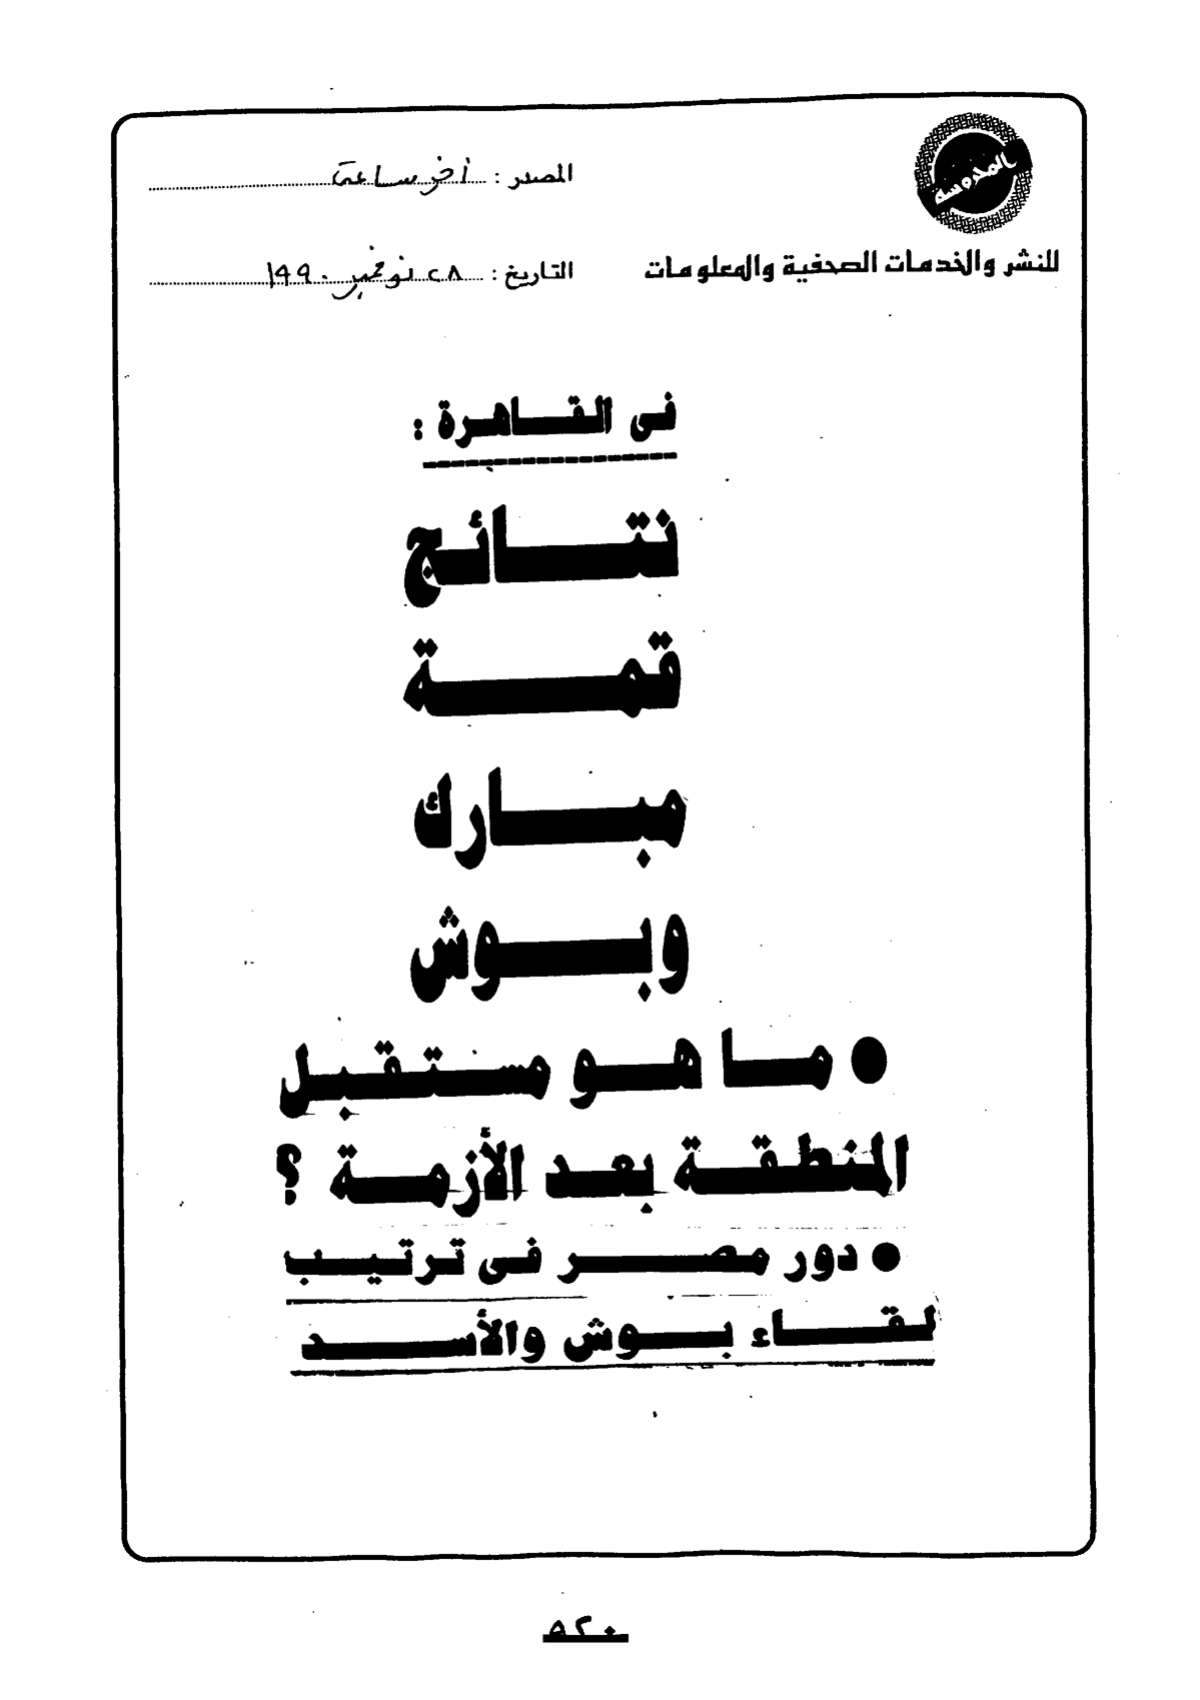 المحروسة
للنشر والخدمات الصحفية والمعلومات
المصدر : آخر ساعة
التاريخ : ٢٨ نوفمبر ١٩٩٠
فى القاهرة :
نتائج
قمة
مبارك
وبوش
● ما هو مستقبل
المنطقة بعد الأزمة ؟
● دور مصر فى ترتيب
لقاء بوش والأسد
٥٢٠